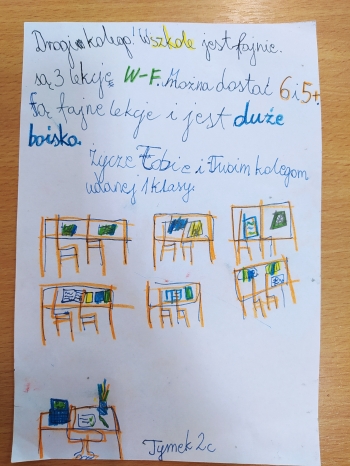 Drogi kolego! W szkole jest fajnie.
są 3 lekcję W-F. Można dostać 6 i 5+
Są fajne lekcje i jest duże
boisko.
Życze Tobie i Twoim kolegom
udanej 1 klasy.
Tymek 2c